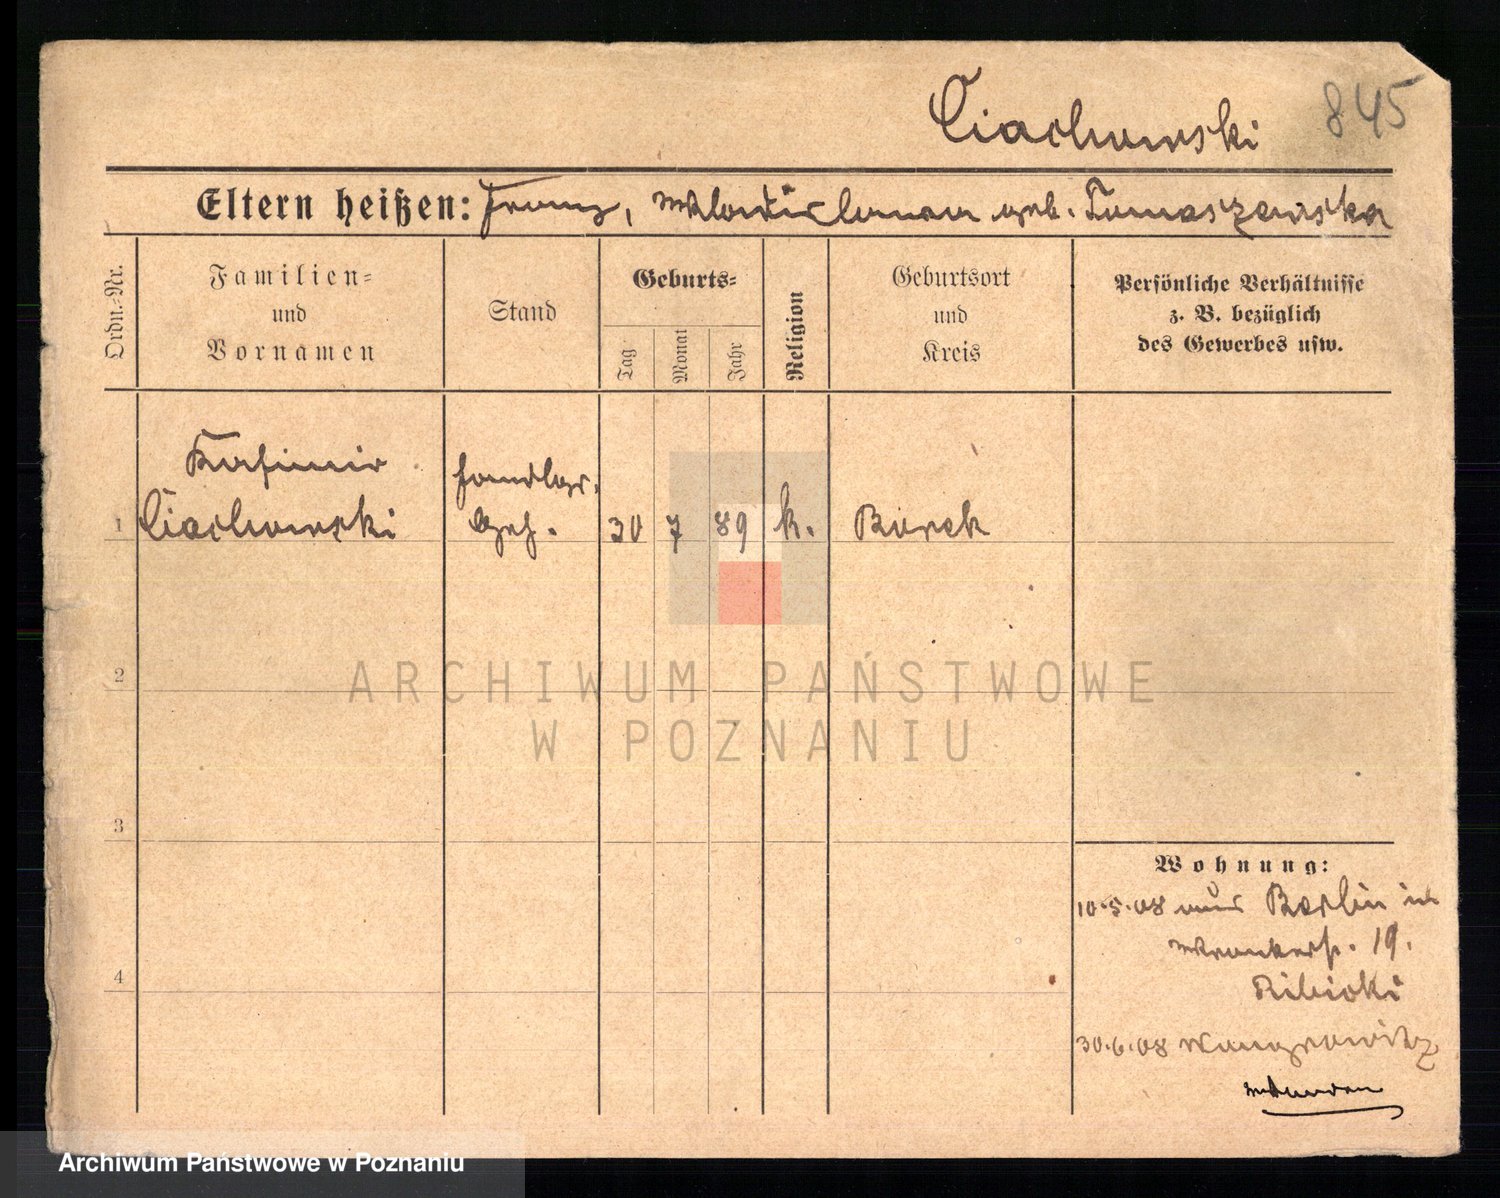 Ciachowski 845
Eltern heißen: Franz, geb. Tomaszewska
Ordn.-Nr.
Familien-
und
Vornamen
Stand
Geburts-
Tag
Monat
Jahr
Religion
Geburtsort
und
Kreis
Persönliche Verhältnisse
z. B. bezüglich
des Gewerbes usw.
Kasimir
Ciachowski
Handlgs.
Geh.
1 30 7 89 k. Borek
2
3
4
Wohnung:
10.5.08 aus Berlin in
19.
Ribicki
30.6.08 Wongrowitz
ARCHIWUM PAŃSTWOWE
W POZNANIU
Archiwum Państwowe w Poznaniu